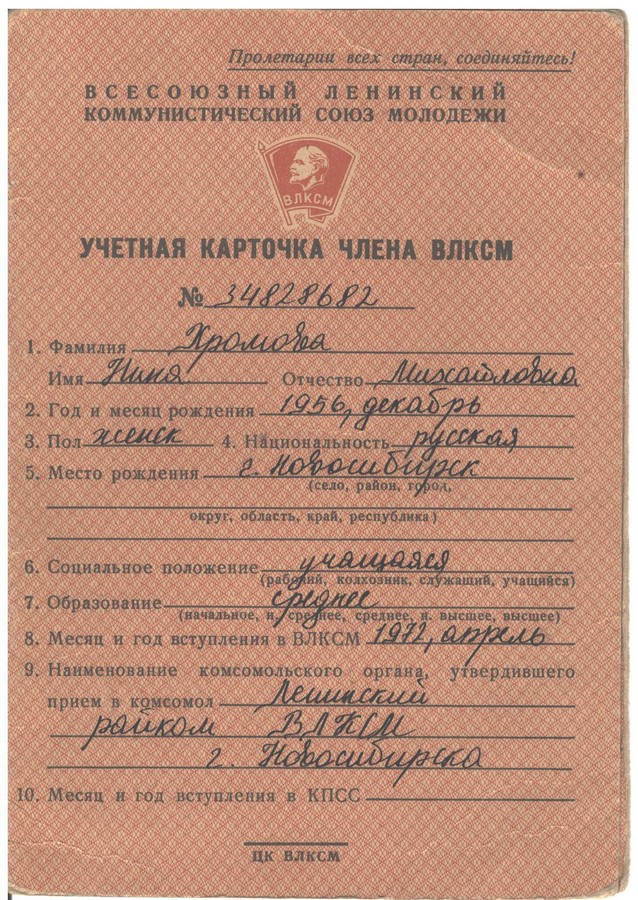 Пролетарии всех стран, соединяйтесь!
ВСЕСОЮЗНЫЙ ЛЕНИНСКИЙ
КОММУНИСТИЧЕСКИЙ СОЮЗ МОЛОДЕЖИ
ВЛКСМ
УЧЕТНАЯ КАРТОЧКА ЧЛЕНА ВЛКСМ
№ 34828682
1. Фамилия Хромова
Имя Нина Отчество Михайловна
2. Год и месяц рождения 1956, декабрь
3. Пол женск 4. Национальность русская
5. Место рождения г. Новосибирск
(село, район, город,
округ, область, край, республика)
6. Социальное положение учащаяся
(рабочий, колхозник, служащий, учащийся)
7. Образование среднее
(начальное, н. среднее, среднее, н. высшее, высшее)
8. Месяц и год вступления в ВЛКСМ 1972, апрель
9. Наименование комсомольского органа, утвердившего
прием в комсомол Ленинский
райком ВЛКСМ
г. Новосибирска
10. Месяц и год вступления в КПСС
ЦК ВЛКСМ